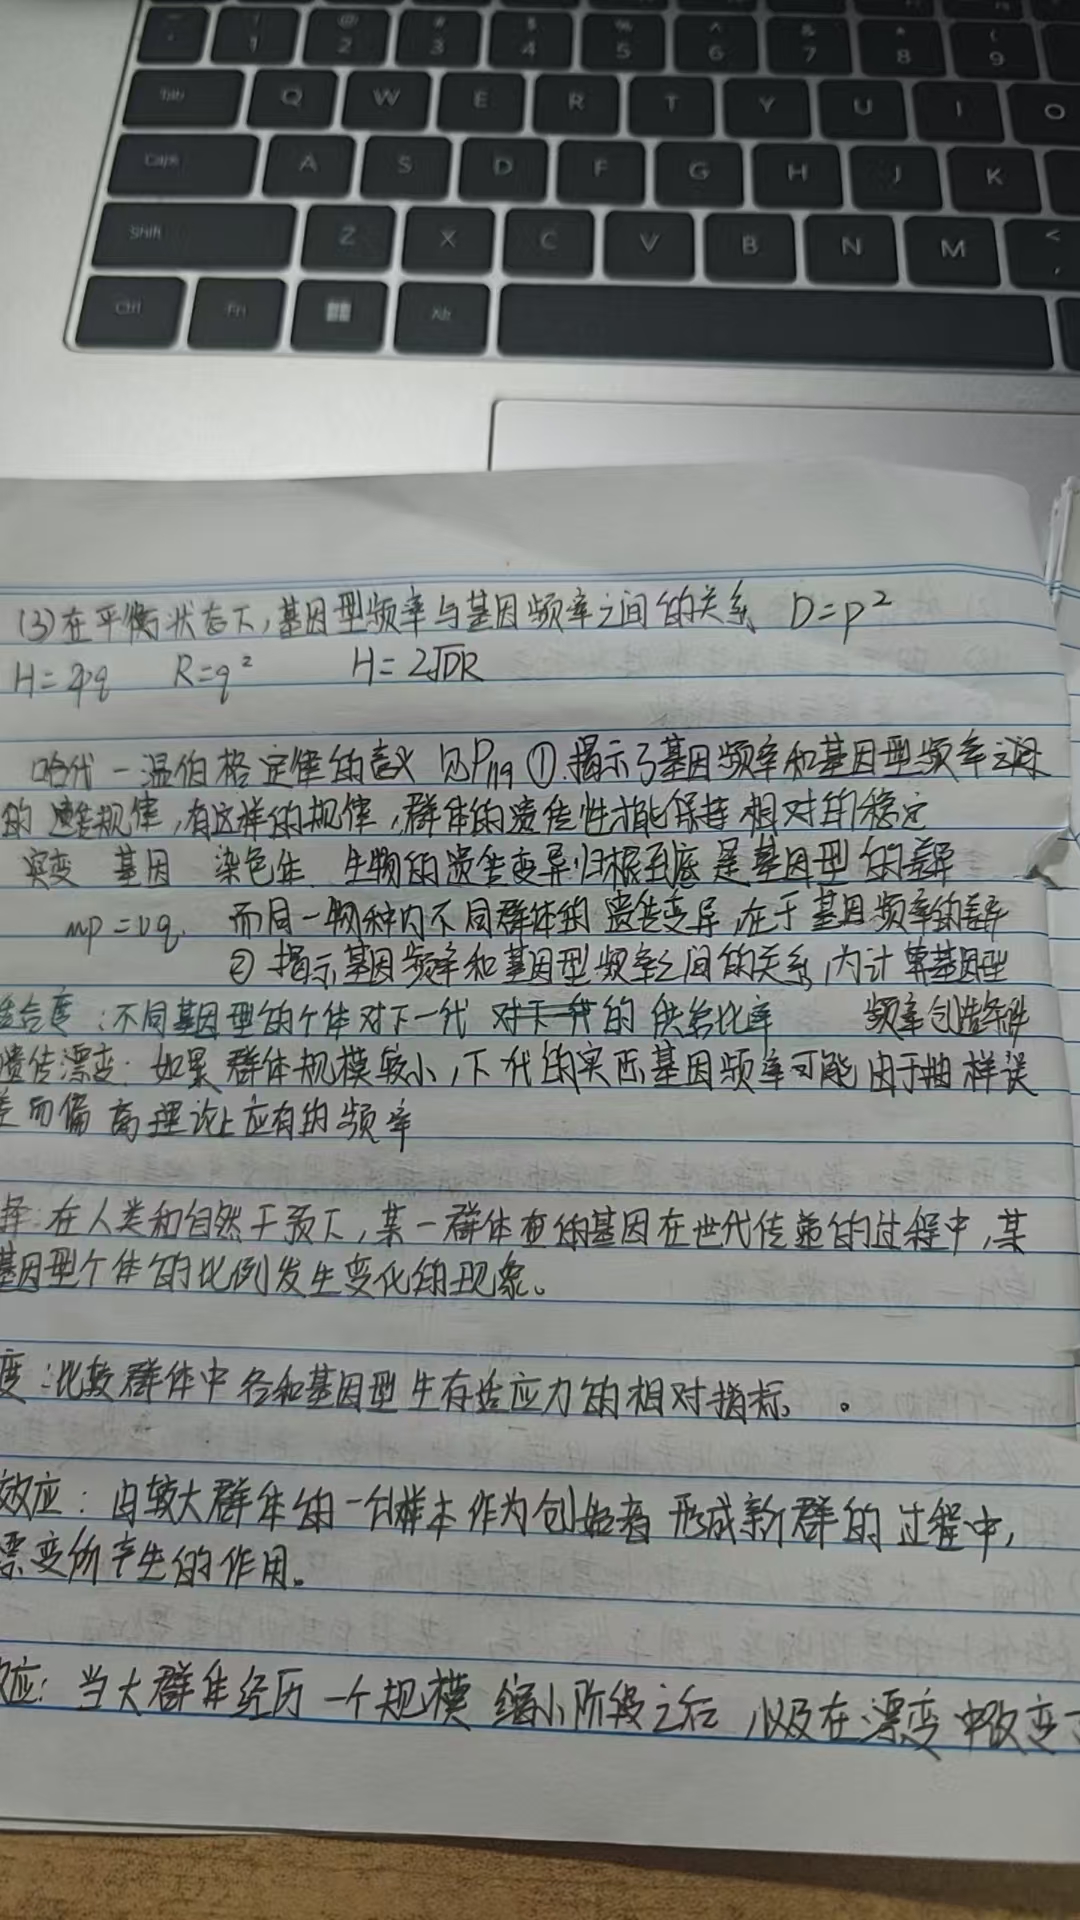 1 2 3 4 5 6 7 8 9
Tab Q W E R T Y U I O
Caps A S D F G H J K
Shift Z X C V B N M <
Ctrl Fn Alt
(3)在平衡状态下,基因型频率与基因频率之间的关系 D=p²
H=2pq R=q² H=2√DR
哈代-温伯格定律的意义 见P119 ①揭示了基因频率和基因型频率之间
的遗传规律,有这样的规律,群体的遗传性才能保持相对的稳定
突变 基因 染色体 生物的遗传变异归根到底是基因型的差异
up=vq 而同一物种内不同群体的遗传变异在于基因频率的差异
②揭示基因频率和基因型频率之间的关系,为计算基因型
适合度:不同基因型的个体对下一代 的供给比率 频率创造条件
遗传漂变:如果群体规模较小,下代的实际基因频率可能由于抽样误
差而偏离理论上应有的频率
择:在人类和自然干预下,某一群体的基因在世代传递的过程中,某
基因型个体的比例发生变化的现象。
度:比较群体中各种基因型生存适应力的相对指标。
效应:由较大群体的一个样本作为创始者形成新群的过程中,
漂变所产生的作用。
效应:当大群体经历一个规模缩小阶段之后,以及在漂变中改变了